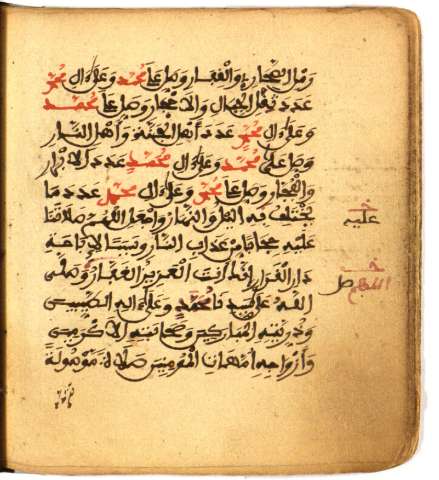 ورمل الصحاري والقفار وصل على محمد وعلى ال
محمد
عدد ثقل الجبال والاحجار وصل على محمد
وعلى ال محمد عدد اهل الجنة واهل النار
وصل على محمد وعلى ال محمد عدد الابرار
والفجار وصل على محمد وعلى ال محمد عدد ما
يختلف به الليل والنهار واجعل اللهم صلاتنا
عليه حجابا من عذاب النار وسببا لاباحة
دار القرار انك انت العزيز الغفار وصلى
الله على سيدنا محمد وعلى اله الطيبين
وذريته المباركين وصحابته الاكرمين
وازواجه امهات المومنين صلاة موصولة
خ
عليه
خ
اللهم